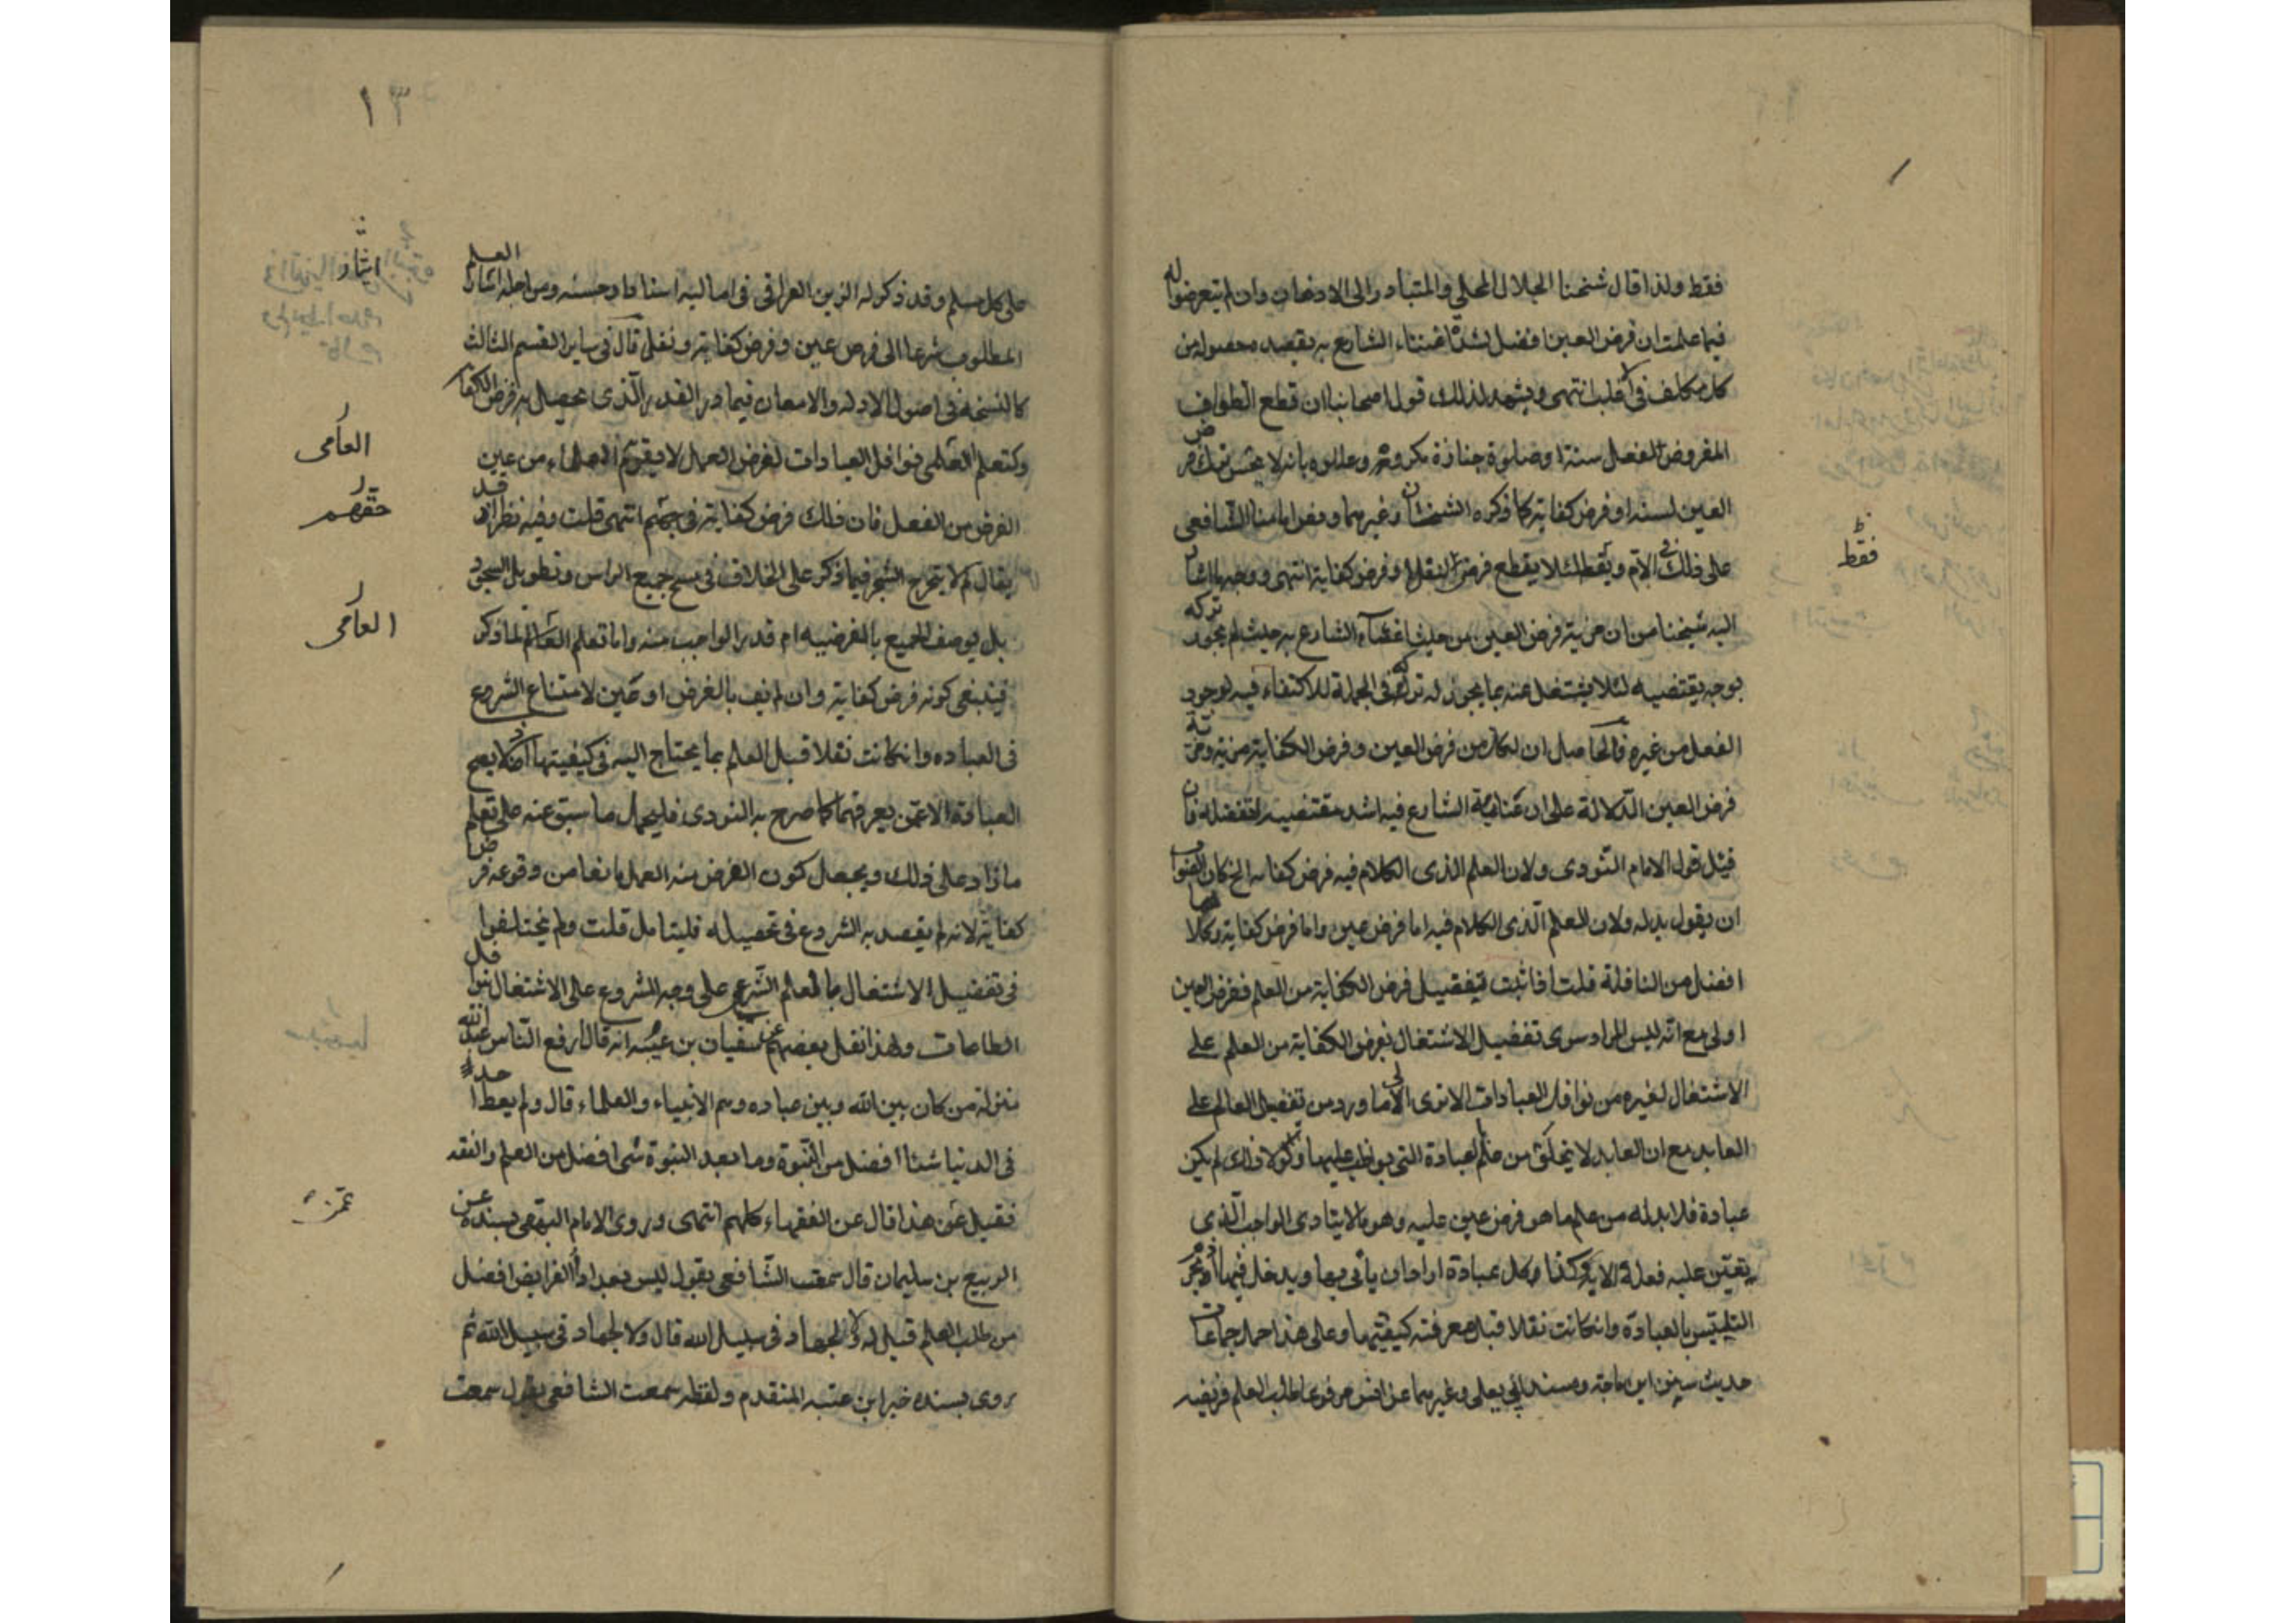 فقط ولذا قال شيخنا الجلال المحلي والمتبادر الى الاذهان وان لم يتعرضوا له
فيما علمت ان فرض العين افضل لشدة اعتناء الشارع به بقصد حصوله من
كل مكلف في الاغلب انتهى ويشهد لذلك قول اصحابنا ان قطع الطواف
المفروض لفعل سنة او صلوة جنازة مكروه وعللوه بانه لا يحسن ترك فرض
العين لسنة او فرض كفاية كما ذكره الشيخان وغيرهما ونص امامنا الشافعي
على ذلك في الام
فقط
لئلا يقطع فرض لنفل او فرض كفاية انتهى ووجه ما اشار
اليه شيخنا من ان مزية فرض العين من حيث اعتناء الشارع به حيث لم يجوز تركه
بوجه يقتضيه لئلا يشتغل عنه بما يجوز له تركه في الجملة للاكتفاء فيه لوجود
الفعل من غيره فالحاصل ان لكل من فرض العين وفرض الكفاية مزية ومزية
فرض العين الدلالة على ان عناية الشارع فيه اشد مقتضيه لتفضله فان
قيل قول الامام النووي ولان العلم الذي الكلام فيه فرض كفايه الخ كان الصواب
ان يقول بدله ولان العلم الذي الكلام فيه اما فرض عين واما فرض كفاية وكلاهما
افضل من النافلة قلت اذا ثبت تفضيل فرض الكفاية من العلم ففرض العين
اولى مع انه ليس المراد سوى تفضيل الاشتغال بفرض الكفاية من العلم على
الاشتغال لغيره من نوافل العبادات الا ترى الى ما ورد من تفضيل العالم على
العابد مع ان العابد لا يخلو من علم بالعبادة التي يواظب عليها ولولا ذلك لم يكن
عبادة فلا بد له من علم ما هو فرض عين عليه وهو ما لا يتادى الواجب الذي
يتعين عليه فعله الا به وكذا كل عبادة اراد ان يأتي بها ويدخل فيها اذ يحرم
التلبس بالعبادة وان كانت نفلا قبل معرفة كيفيتها وعلى هذا حمل جماعات
حديث سنن ابن ماجة ومسند ابي يعلى وغيرهما عن انس مرفوعا طلب العلم فريضه
١٣
على كل مسلم وقد ذكر له الزين العراقي في اماليه اسنادا وحسنه ومن اجله اشار العلم
اشار
المطلوب شرعا الى فرض عين وفرض كفاية ونفل قال في القسم الثالث
كالتبحر في اصول الادلة والامعان فيما وراء القدر الذي يحصل به فرض الكفاية
وكتعلم العامي نوافل العبادات لغرض العمل لا ما يقوم به العلماء من تمييز
العامي
الفرض من النفل فان ذلك فرض كفاية في حقهم انتهى قلت وفيه نظر اذ قد
حقهم
يقال لم لا يتخرج التبحر فيما ذكر على الخلاف في مسح جميع الراس وتطويل السجود
بل يوصف الجميع بالفرضيه ام قدر الواجب منه واما تعلم العامي لما ذكر
العامي
فينبغي كونه فرض كفاية وان لم يف بالغرض او عين لامتناع الشروع
في العباده وان كانت نفلا قبل العلم بما يحتاج اليه في كيفيتها اذ لا يصح
العبادة الا ممن يعرفها كما صرح به النووي فليحمل ما سبق عنه على تعلم
ما زاد على ذلك ويجعل كون الغرض منه العمل مانعا من وقوعه فرض
كفاية لانه لم يقصد به الشروع في تحصيله فليتامل قلت ولم يختلفوا
في تفضيل الاشتغال بالعلم الشرعي على وجه الشروع على الاشتغال بنوافل
الطاعات ولهذا نقل بعضهم عن سفيان بن عيينه انه قال ارفع الناس عند الله
منزلة من كان بين الله وبين عباده وهم الانبياء والعلماء قال ولم يعط احد
في الدنيا شيئا افضل من النبوة وما بعد النبوة شئ افضل من العلم والفقه
فقيل عمن هذا قال عن الفقهاء كلهم انتهى وروى الامام البيهقي بسنده عن
عمن
الربيع بن سليمان قال سمعت الشافعي يقول ليس بعد اداء الفرايض افضل
من طلب العلم قيل له ولا الجهاد في سبيل الله قال ولا الجهاد في سبيل الله ثم
روى بسنده خبر ابن عيينه المتقدم ولفظه سمعت الشافعي يقول سمعت